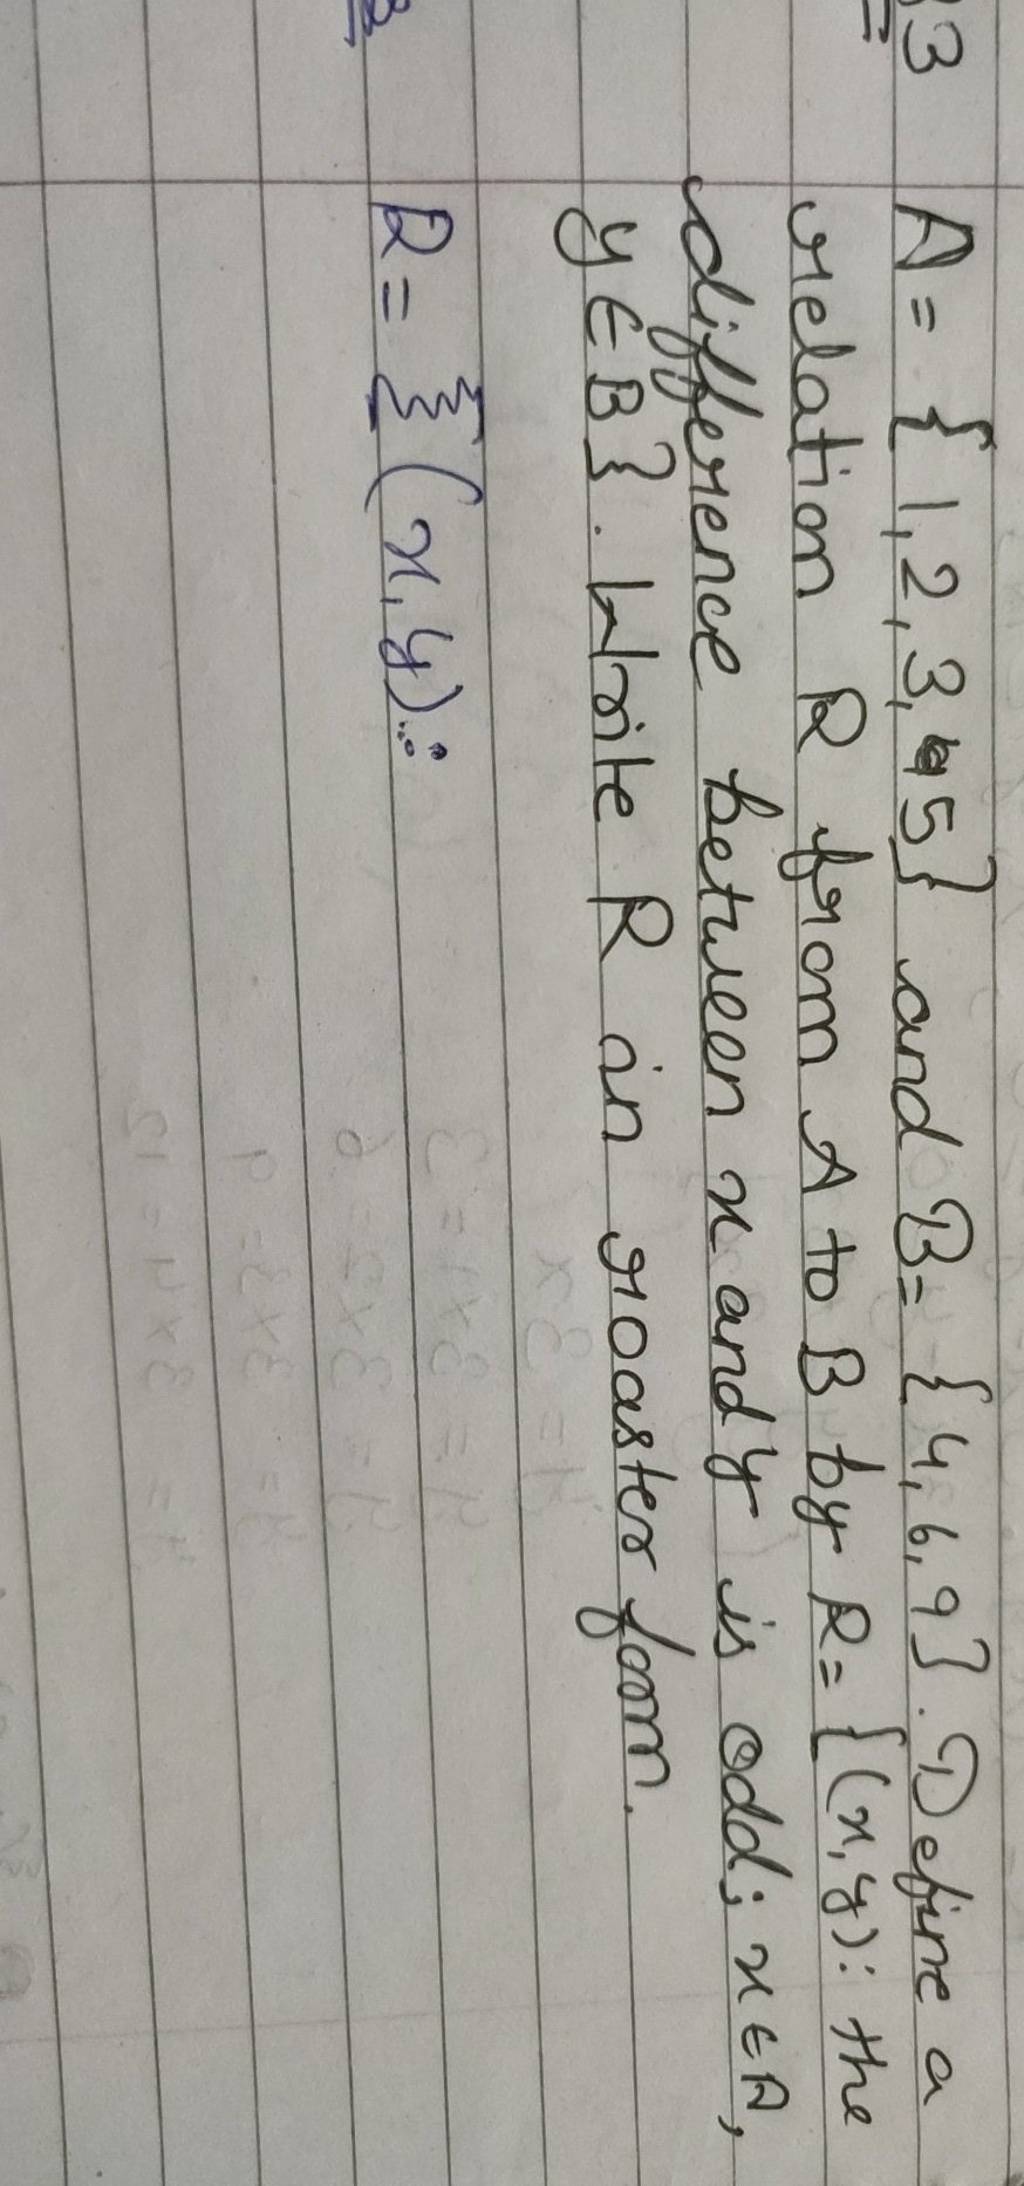 3 A = {1,2,3,5} and B = {4,6,9}. Define a
relation R from A to B by R = {(x,y): the
difference between x and y is odd; x ∈ A,
y ∈ B}. Write R in roaster form.
R = {(x,y):